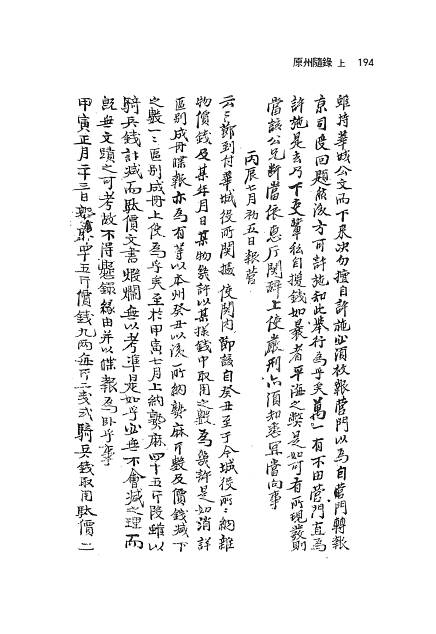 原州隨錄 上 194
雖持華城公文而下來決勿擅自許施必須枚報營門以爲自營門轉報
京司度回題然後方可許施知此擧行爲乎矣萬一有不由營門直爲
許施是去乃下吏輩私自撥錢如是者平海之弊是如可有所現發則
當該公兄斷當依惠廳關辭上使嚴刑亦須知悉宜當向事
丙辰七月初五日報營
云云節到付華城役所關據使關內節該自癸丑至于今城役所所納雜
物價錢及某年月日某物幾許以某樣錢中取用之數爲幾許是如消詳
區別成冊牒報亦爲有等以本州癸丑以後所納熟麻斤數及價錢減下
之數一一區別成冊上使爲乎矣至於甲寅七月上納熟麻四十五斤段雖以
騎兵錢計減而馱價文書爛燜無以考準是如乎必無不會減之理而
旣無文蹟之可考故不得懸錄緣由幷以牒報爲臥乎事
甲寅正月二十三日熟麻四十五斤價錢九兩每斤二戔式騎兵錢取用馱價二